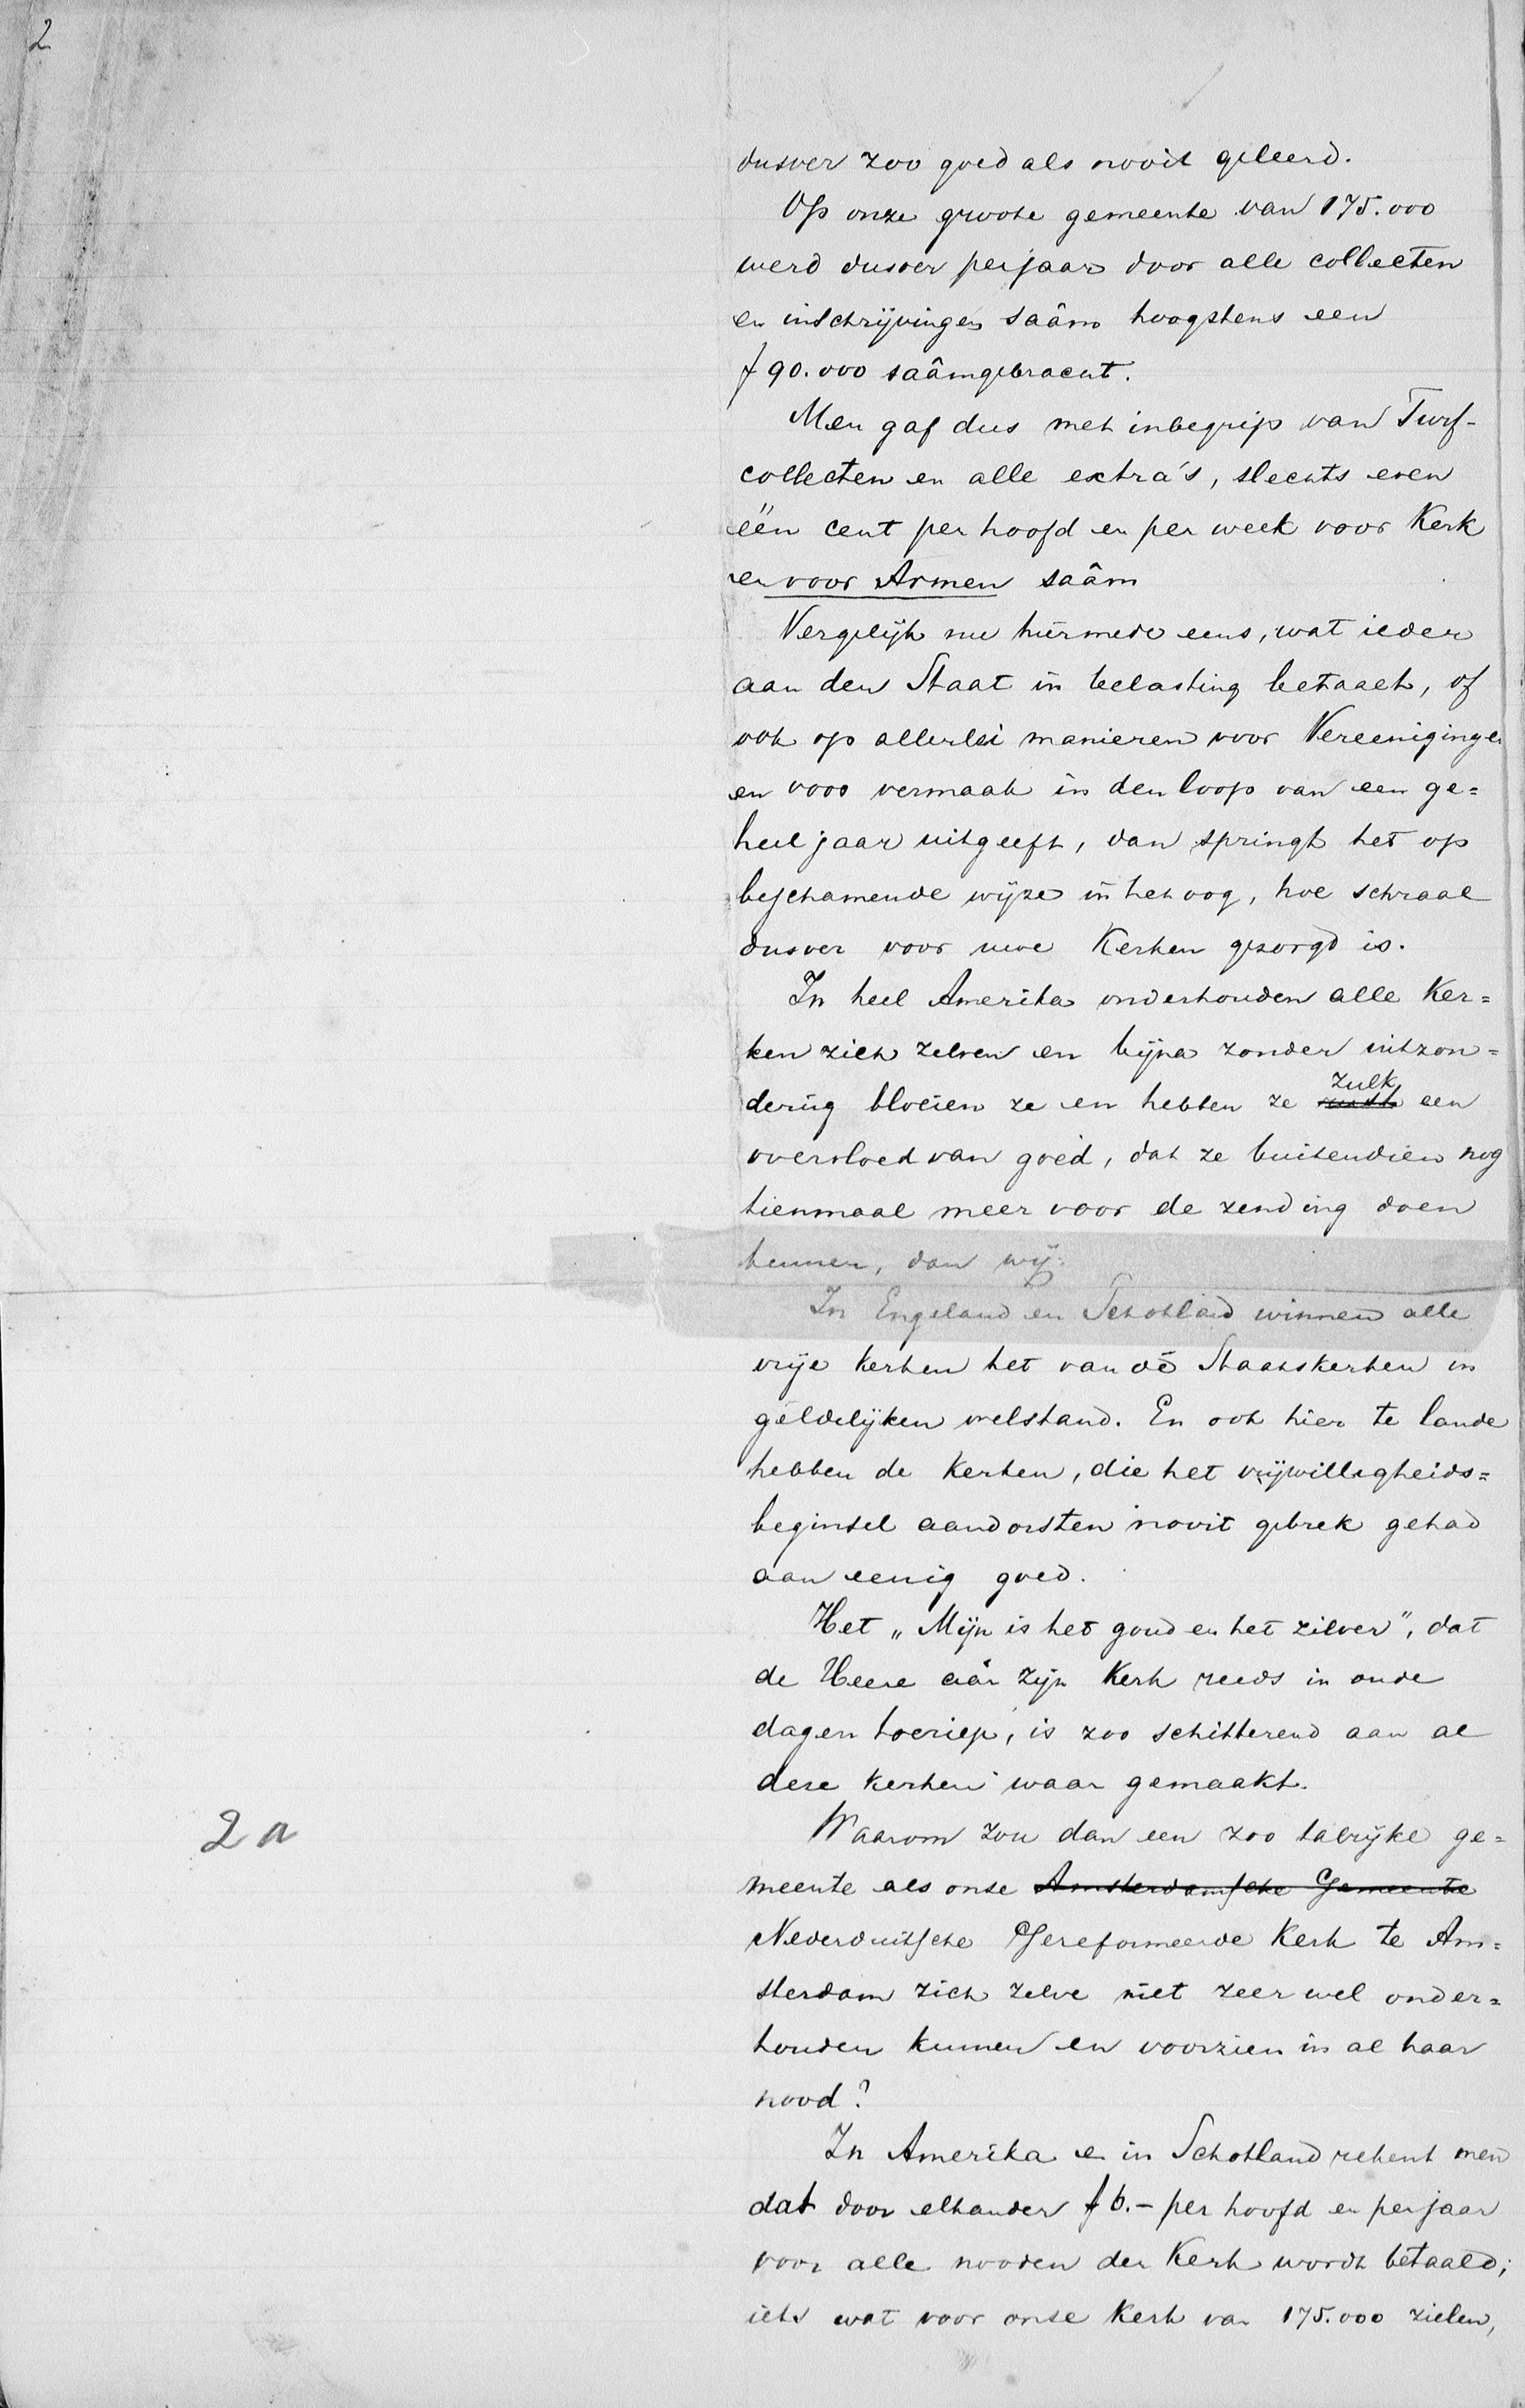 2
dusver zoo goed als nooit geleerd.
Op onze groote gemeente van 175.000
werd dusver per jaar door alle collecten
en inschrijvingen saâm hoogstens een
f 90.000 saâmgebracht.
Men gaf dus met inbegrip van Turf-
collecten en alle extra's, slechts even
één cent per hoofd en per week voor Kerk
en voor Armen saâm
Vergelijk nu hiermede eens, wat ieder
aan den Staat in belasting betaalt, of
ook op allerlei manieren voor Vereenigingen
en voor vermaak in den loop van een ge=
heel jaar uitgeeft, dan springt het op
beschamende wijze in het oog, hoe schraal
dusver voor uwe Kerken gezorgd is.
In heel Amerika onderhouden alle Ker=
ken zich zelven en bijna zonder uitzon=
zulk
dering bloeien ze en hebben ze een
overvloed van goed, dat ze buitendien nog
tienmaal meer voor de zending doen
kunnen, dan wij.
In Engeland en Schotland winnen alle
vrije kerken het van de Staatskerken in
geldelijken welstand. En ook hier te lande
hebben de Kerken, die het vrijwilligheids=
beginsel aandorsten nooit gebrek gehad
aan eenig goed.
Het „Mijn is het goud en het zilver", dat
de Heere aan zijn Kerk reeds in oude
dagen toeriep, is zoo schitterend aan al
deze kerken waar gemaakt.
2a
Waarom zou dan een zoo talrijke ge=
meente als onze Amsterdamsche Gemeente
Nederduitsche Gereformeerde Kerk te Am=
sterdam zich zelve niet zeer wel onder=
houden kunnen en voorzien in al haar
nood?
In Amerika en in Schotland rekent men
dat door elkander f 6.- per hoofd en per jaar
voor alle nooden der Kerk wordt betaald;
iets wat voor onze Kerk van 175.000 zielen,